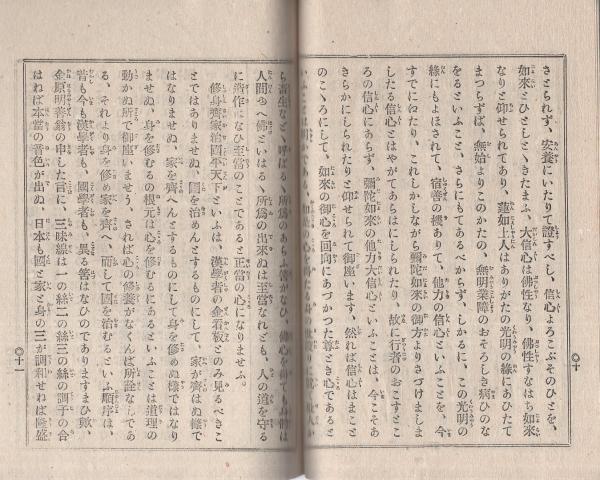 さとられず、安養にいたりて證すべし、信心よろこぶそのひとを、
如來とひとしとゝきたまふ、大信心は佛性なり、佛性すなはち如來
なりと仰せられてあり、蓮如上人はありがたの光明の緣にあひたて
まつらずば、無始よりこのかたの、無明業障のおそろしき病ひのな
をるといふこと、さらにもてあるべからず、しかるに、この光明の
緣にもよほされて、宿善の機ありて、他力の信心といふことを、今
すでにわたり、これしかしながら彌陀如來の御方よりさづけましま
したる信心とはやがてあらはにしられたり、故に行者のおこすとこ
ろの信心にあらず、彌陀如來の他力大信心といふことは、今こそあ
きらかにしられたりと仰せられて御座います、然れば信心はまこと
のこゝろにして、如來の御心を回向にあづかつた尊とき心であると
十
ら畜生などゝ呼ばるゝ所爲のあらふ筈がなひ、佛心を
人間ゆへ佛といはるゝ所爲の出來ぬは至當なれども、人の道を守る
に造作はなひ至當のことであると正當の心になりませふ。
修身齊家治國平天下といふは、漢學者の金看板とのみ見るべきこ
とではありませぬ、國を治めんとするものにして、家が齊はぬ樣で
はなりませぬ、家を齊へんとするものにして身を修めぬ樣ではなり
ませぬ、身を修むるの根元は心を修むるにあるといふことは道理の
動かぬ所で御座いませう、されば心の修養がなくんば所詮なしであ
る、それより身を修め家を齊へ、而して國を治むるといふ順序は、
昔も今も漢學者も、國學者も、異る筈はなひのでありますまひ歟、
金原明善翁の申した言に、三味線は一の絲二の絲三の絲の調子の合
はねば本當の音色が出ぬ、日本も國と家と身の三が調和せねば隆盛
十一